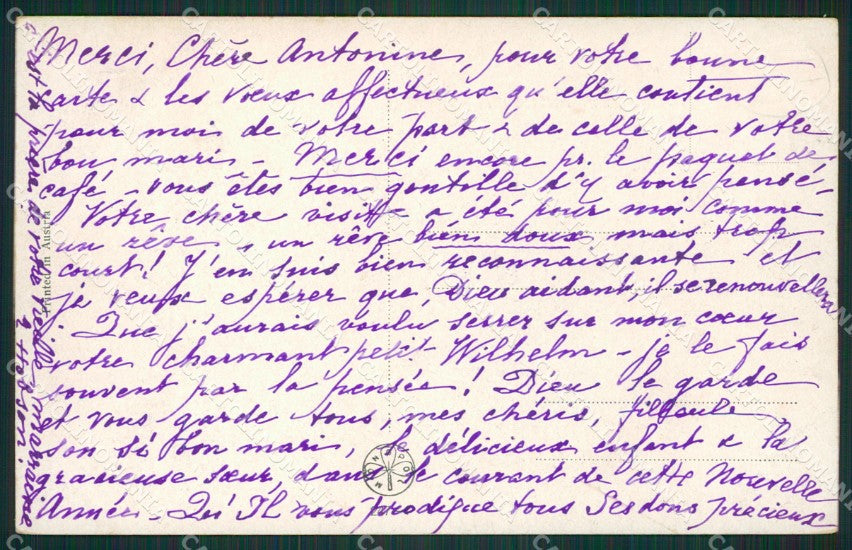 Merci, Chère Antonine, pour votre bonne
carte & les vœux affectueux qu'elle contient
pour moi de votre part & de celle de votre
bon mari - Merci encore pr. le paquet de
café - vous êtes bien gentille d'y avoir pensé,
Votre chère visite a été pour moi comme
un rêve, un rêve bien doux, mais trop
court! J'en suis bien reconnaissante et
je veux espérer que, Dieu aidant, il se renouvellera
Que j'aurais voulu serrer sur mon cœur
votre charmant petit Wilhelm - je le fais
souvent par la pensée! Dieu le garde
et vous garde tous, mes chéris, filleule,
son si bon mari, le délicieux enfant & la
gracieuse sœur, dans le courant de cette Nouvelle
Année - Qu'Il vous prodigue tous Ses dons précieux
de votre vieille marraine
Printed in Austria
CARTOLINOMANIA